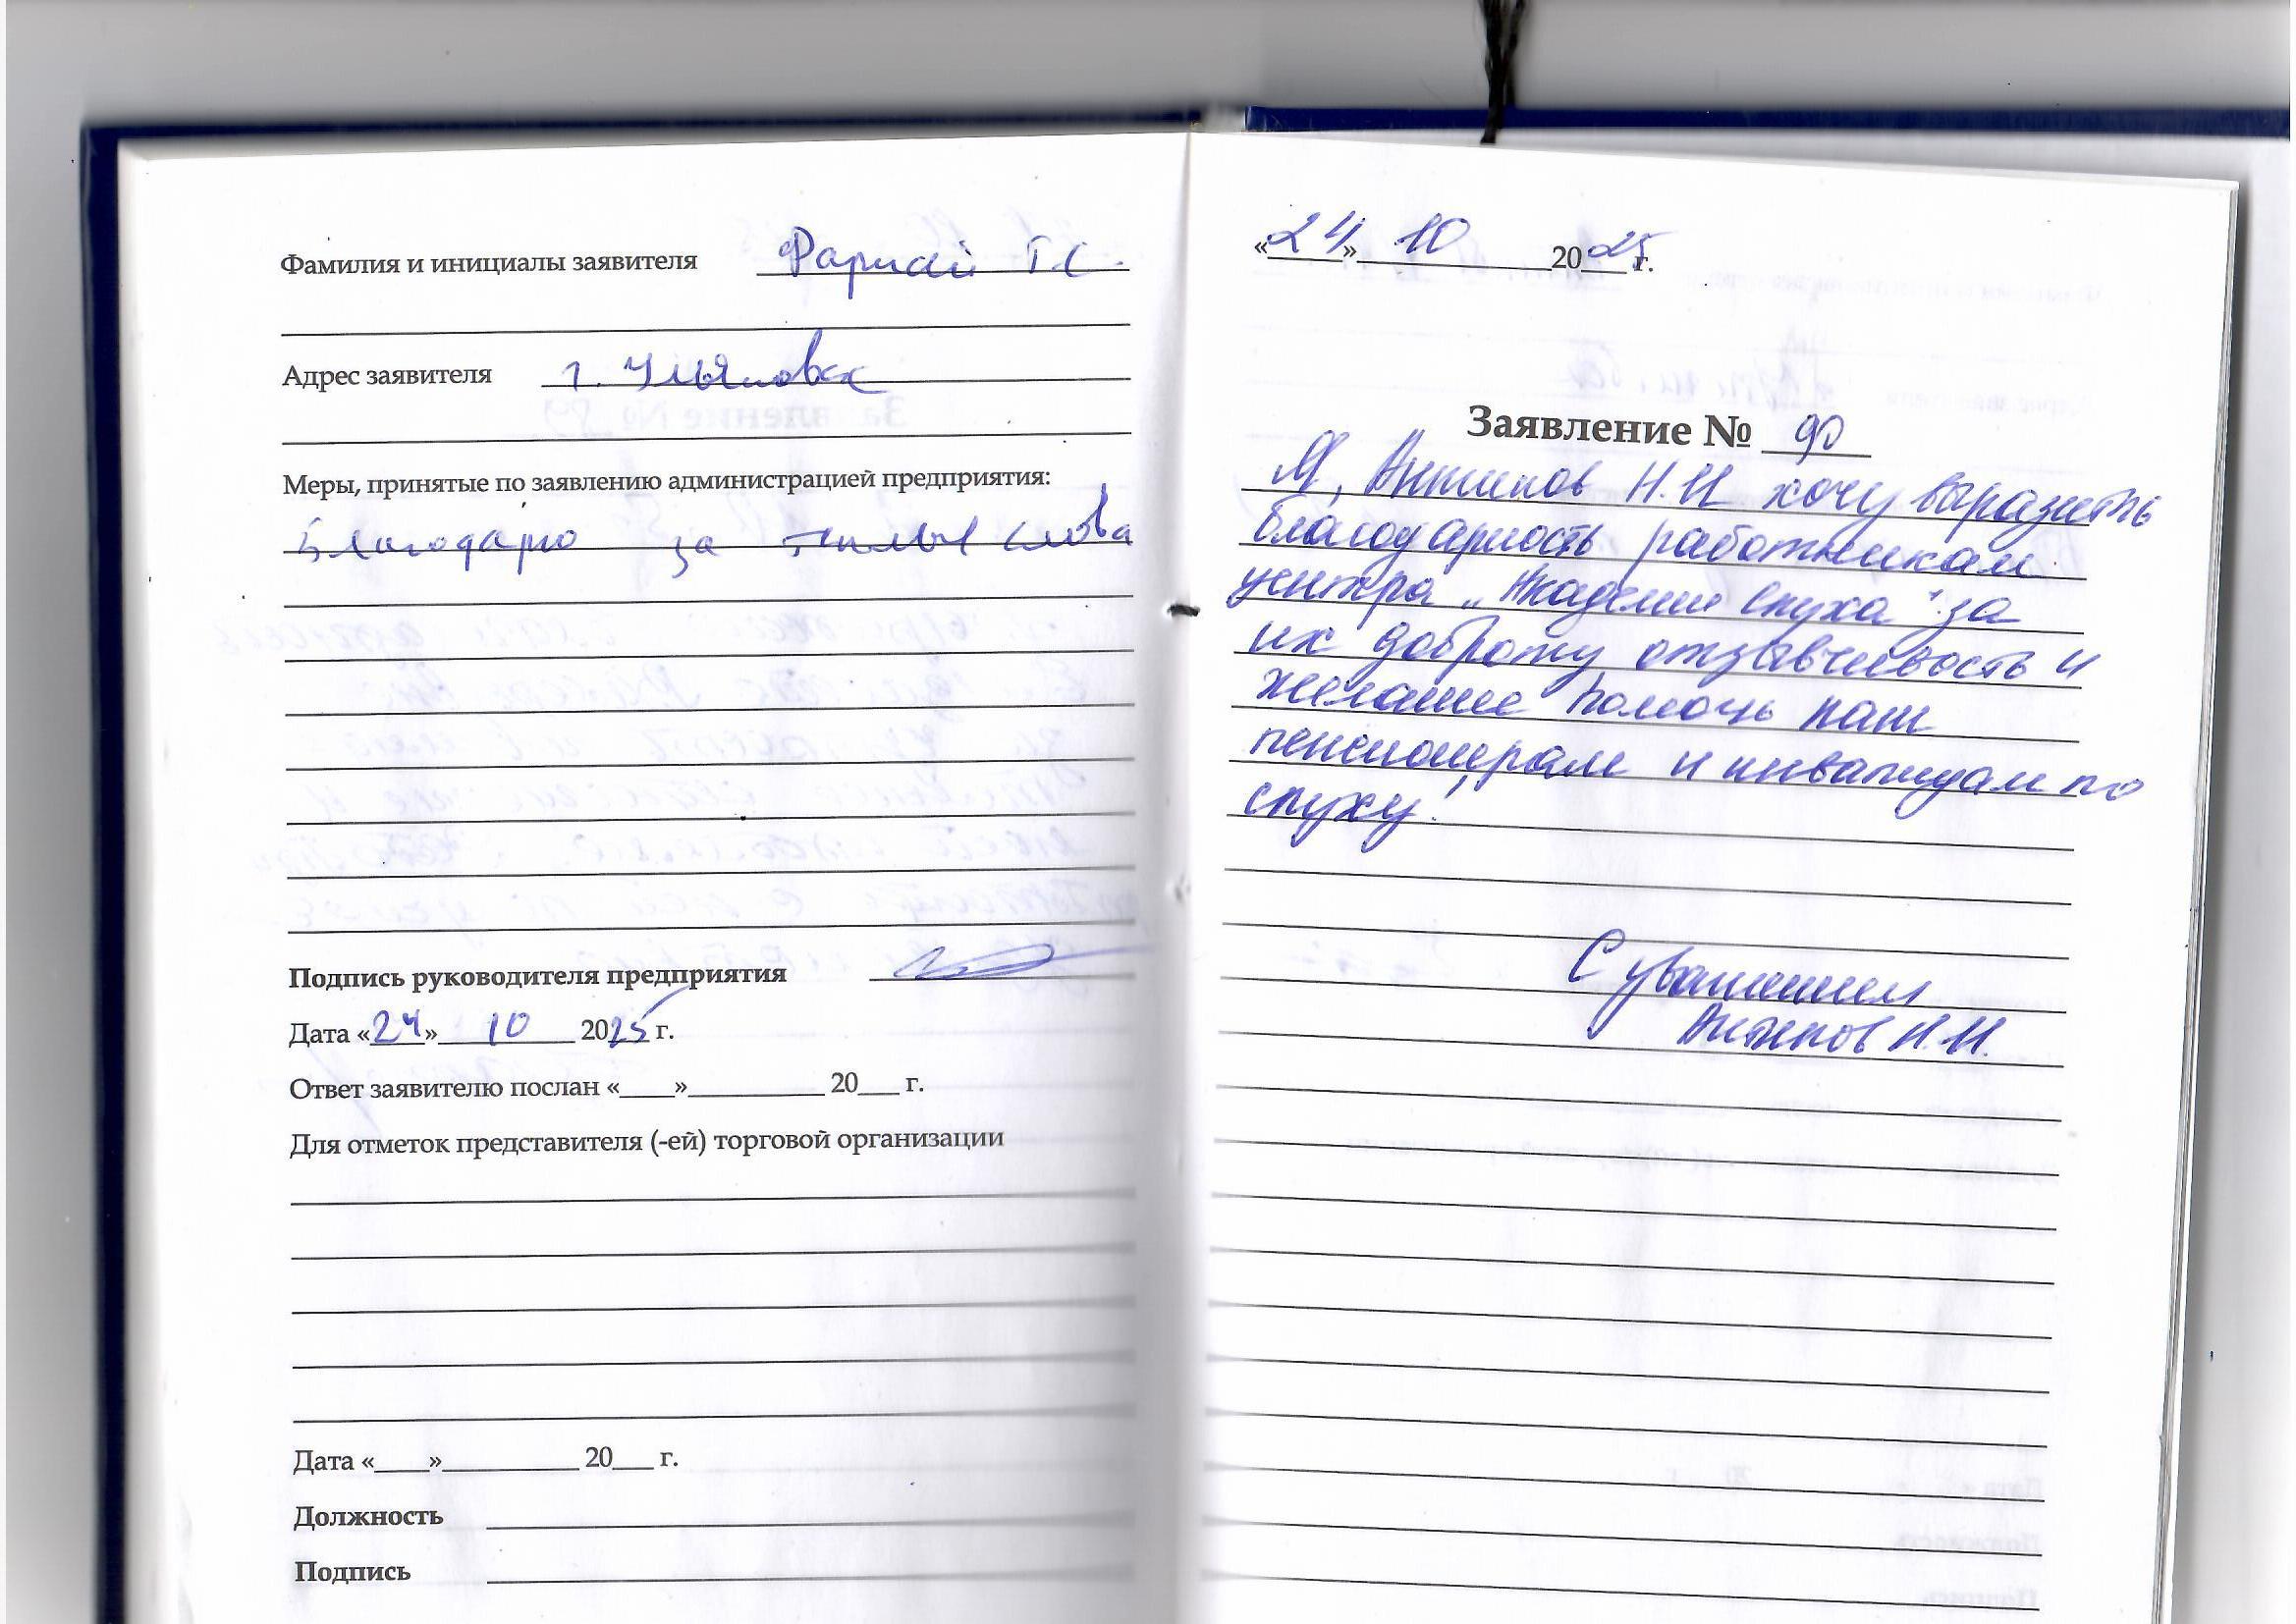 Фамилия и инициалы заявителя Т.С.
Адрес заявителя г. Ульяновск
Меры, принятые по заявлению администрацией предприятия:
Благодарю за теплые слова
Подпись руководителя предприятия
Дата «24» 10 2025 г.
Ответ заявителю послан «___»__________ 20___ г.
Для отметок представителя (-ей) торговой организации
Дата «____»___________ 20___ г.
Должность
Подпись
«24» 10 2025 г.
Заявление № 90
Я, Антипов Н.И хочу выразить
благодарность работникам
центра „Академии слуха" за
их доброту отзывчивость и
желание помочь нам
пенсионерам и инвалидам по
слуху!
С уважением
Антипов Н.И.